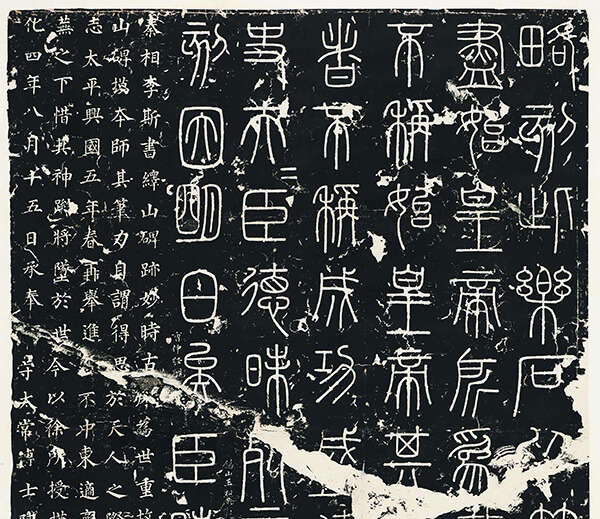 略刻此樂石以
盡始皇帝所為
不稱始皇帝其
者不稱成功盛
史夫=臣德昧死
刻因明白矣臣
秦相李斯書繹山碑跡妙時古殊為世重故
山碑摸本師其筆力自謂得思於天人之際
志太平興國五年春再舉進士不中東適齊
蕪之下惜其神蹤將墜於世今以徐所授摸
化四年八月十五日承奉郎守太常博士